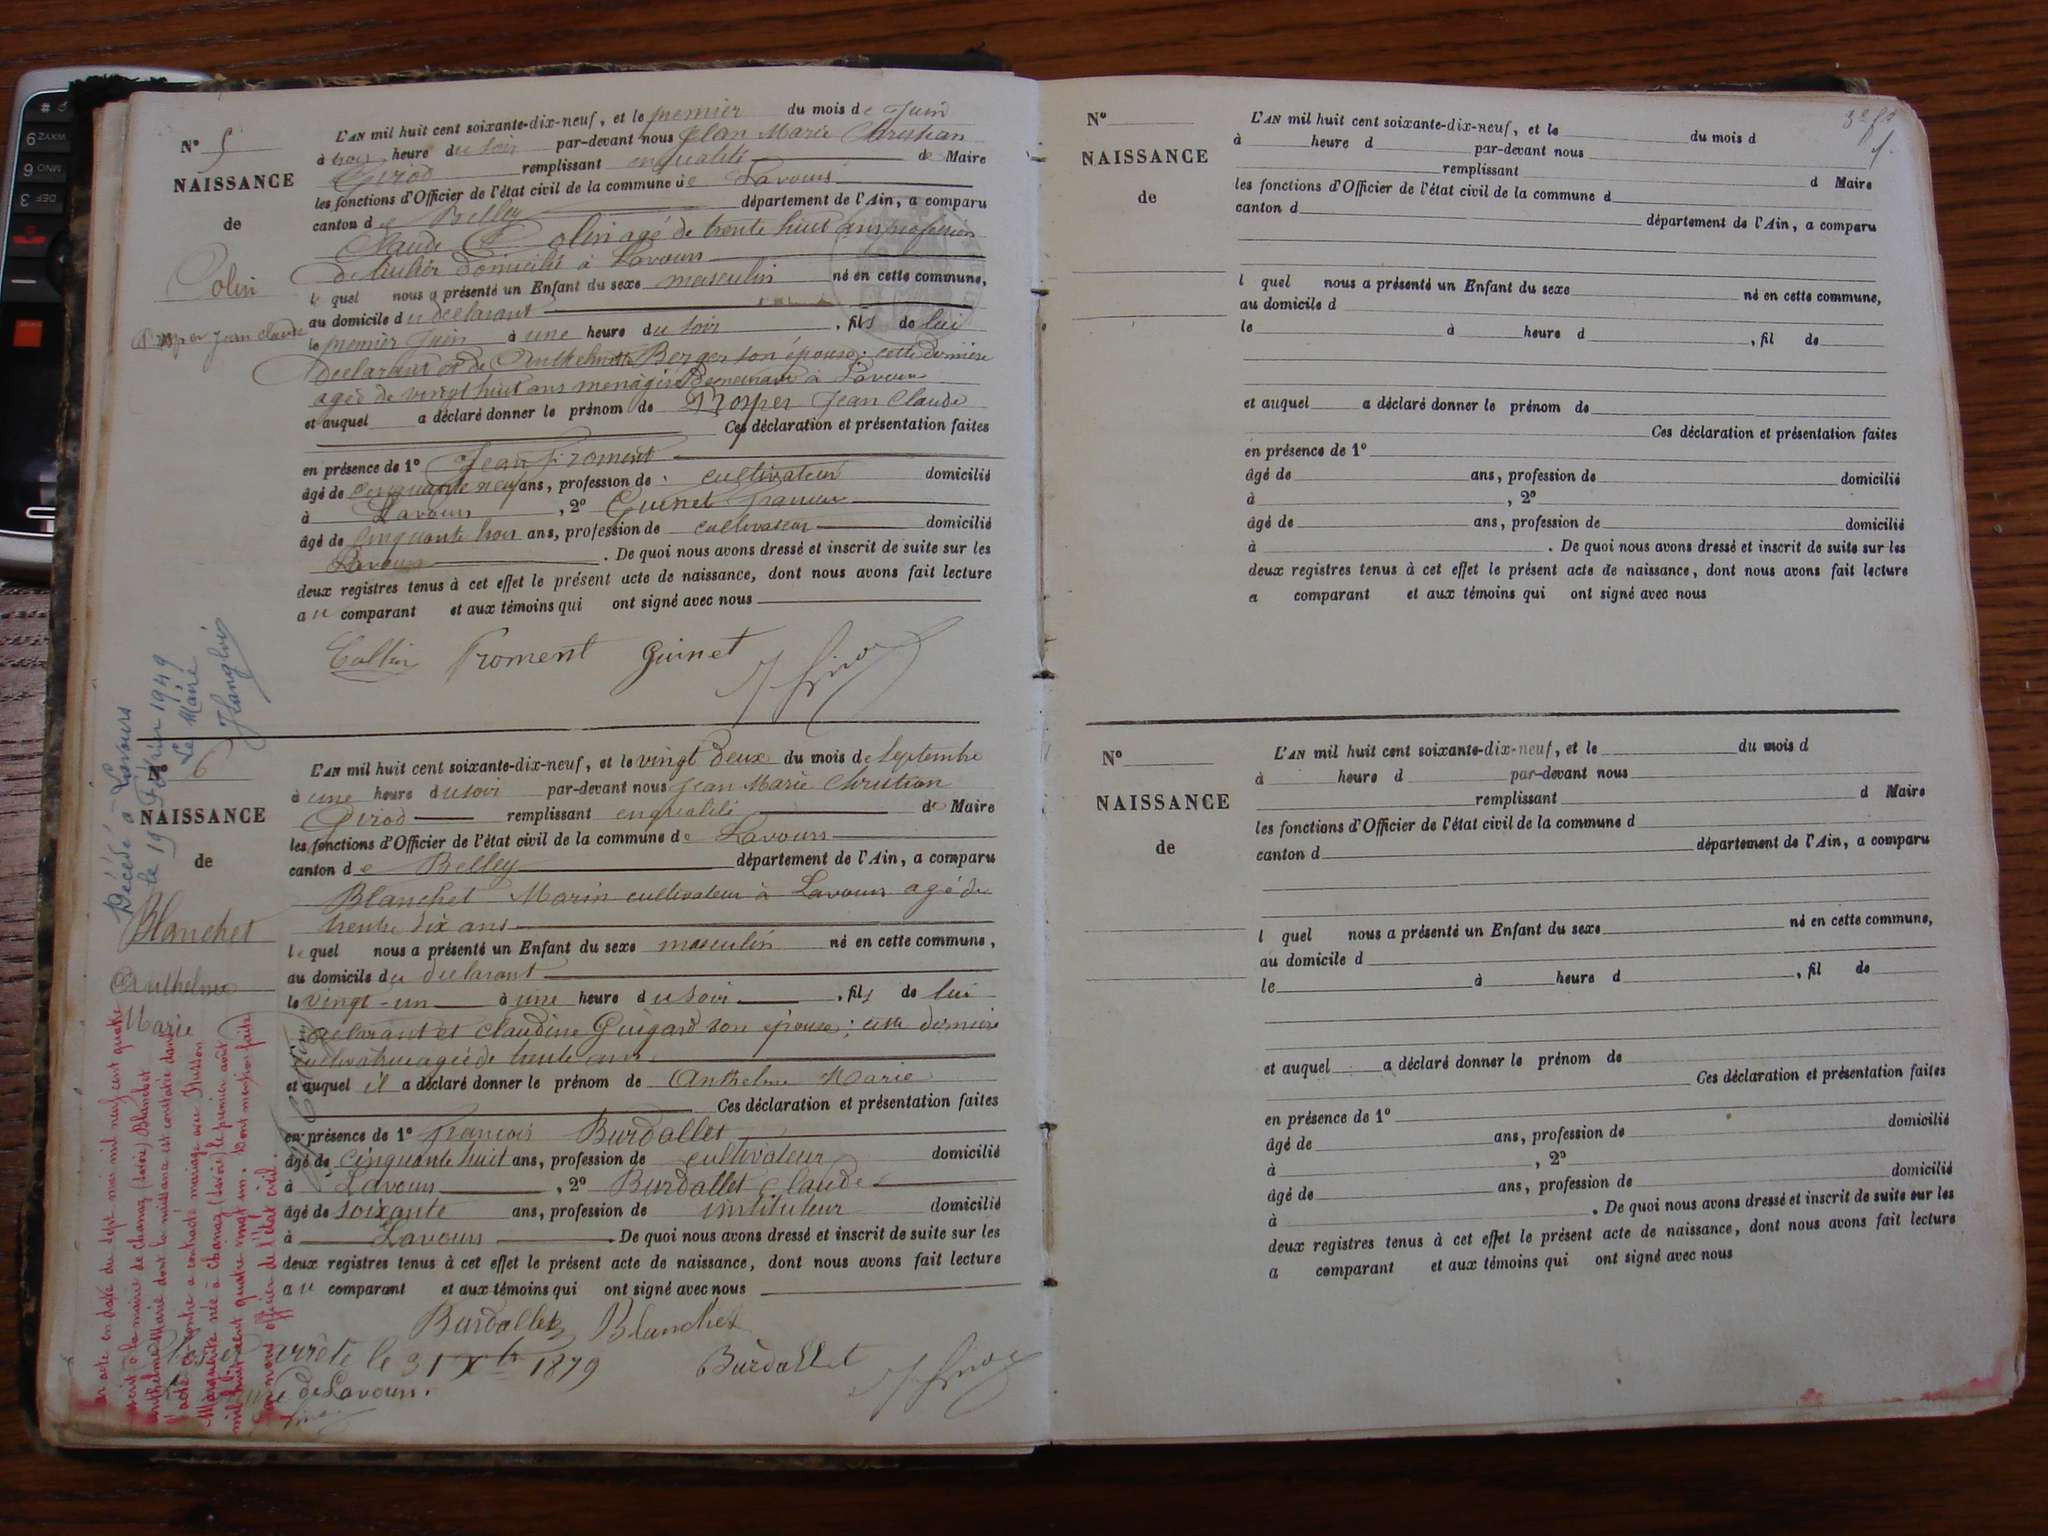 N° 5
NAISSANCE
de
Colin
Prosper Jean Claude
L'AN mil huit cent soixante-dix-neuf, et le premier du mois de Juin
à trois heure du soir par-devant nous Jean Marie Christian
Girod remplissant en qualité de Maire
les fonctions d'Officier de l'état civil de la commune de Lavours
canton de Belley département de l'Ain, a comparu
Claude Colin agé de trente huit ans profession
de domicilié à Lavours
le quel nous a présenté un Enfant du sexe masculin né en cette commune,
au domicile du déclarant
le premier Juin à une heure du soir, fils de lui
déclarant et de Anthelmette Berger son épouse; cette dernière
agée de vingt huit ans ménagère Demeurant à Lavours
et auquel a déclaré donner le prénom de Prosper Jean Claude
Ces déclaration et présentation faites
en présence de 1° Jean Froment
âgé de cinquante neuf ans, profession de cultivateur domicilié
à Lavours, 2° Guinet François
âgé de cinquante trois ans, profession de cultivateur domicilié
Lavours. De quoi nous avons dressé et inscrit de suite sur les
deux registres tenus à cet effet le présent acte de naissance, dont nous avons fait lecture
au comparant et aux témoins qui ont signé avec nous
Collin Froment Guinet
J Girod
Décédé à Lavours
le 19 Février 1949
Le Maire
N° 6
NAISSANCE
de
Blanchet
Anthelme
Marie
L'AN mil huit cent soixante-dix-neuf, et le vingt deux du mois de Septembre
à une heure du soir par-devant nous Jean Marie Christian
Girod remplissant en qualité de Maire
les fonctions d'Officier de l'état civil de la commune de Lavours
canton de Belley département de l'Ain, a comparu
Blanchet Marin cultivateur à Lavours agé de
trente six ans
le quel nous a présenté un Enfant du sexe masculin né en cette commune,
au domicile du déclarant
le vingt-un à une heure du soir, fils de lui
déclarant et Claudine Guigard son épouse; cette dernière
cultivatrice agée de trente ans
et auquel il a déclaré donner le prénom de Anthelme Marie
Ces déclaration et présentation faites
en présence de 1° François Burdallet
âgé de cinquante huit ans, profession de cultivateur domicilié
à Lavours, 2° Burdallet Claude
âgé de soixante ans, profession de instituteur domicilié
à Lavours. De quoi nous avons dressé et inscrit de suite sur les
deux registres tenus à cet effet le présent acte de naissance, dont nous avons fait lecture
au comparant et aux témoins qui ont signé avec nous
Burdallet Blanchet
Burdallet J Girod
arrêté le 31 Xbre 1879
de Lavours.
par acte en date du sept mai mil neuf cent quatre
inscrit à la mairie de Chanaz (Savoie) Blanchet
Anthelme Marie dont la naissance est constatée dans
l'acte ci-contre a contracté mariage avec Husson
Marguerite née à Chanaz (Savoie) le premier août
mil huit cent quatre vingt un. Dont mention faite
par nous officier de l'état civil.
N°
NAISSANCE
de
L'AN mil huit cent soixante-dix-neuf, et le du mois d
à heure d par-devant nous
remplissant d Maire
les fonctions d'Officier de l'état civil de la commune d
canton d département de l'Ain, a comparu
l quel nous a présenté un Enfant du sexe né en cette commune,
au domicile d
le à heure d, fil de
et auquel a déclaré donner le prénom de
Ces déclaration et présentation faites
en présence de 1°
âgé de ans, profession de domicilié
à, 2°
âgé de ans, profession de domicilié
à. De quoi nous avons dressé et inscrit de suite sur les
deux registres tenus à cet effet le présent acte de naissance, dont nous avons fait lecture
a comparant et aux témoins qui ont signé avec nous
N°
NAISSANCE
de
L'AN mil huit cent soixante-dix-neuf, et le du mois d
à heure d par-devant nous
remplissant d Maire
les fonctions d'Officier de l'état civil de la commune d
canton d département de l'Ain, a comparu
l quel nous a présenté un Enfant du sexe né en cette commune,
au domicile d
le à heure d, fil de
et auquel a déclaré donner le prénom de
Ces déclaration et présentation faites
en présence de 1°
âgé de ans, profession de domicilié
à, 2°
âgé de ans, profession de domicilié
à. De quoi nous avons dressé et inscrit de suite sur les
deux registres tenus à cet effet le présent acte de naissance, dont nous avons fait lecture
a comparant et aux témoins qui ont signé avec nous